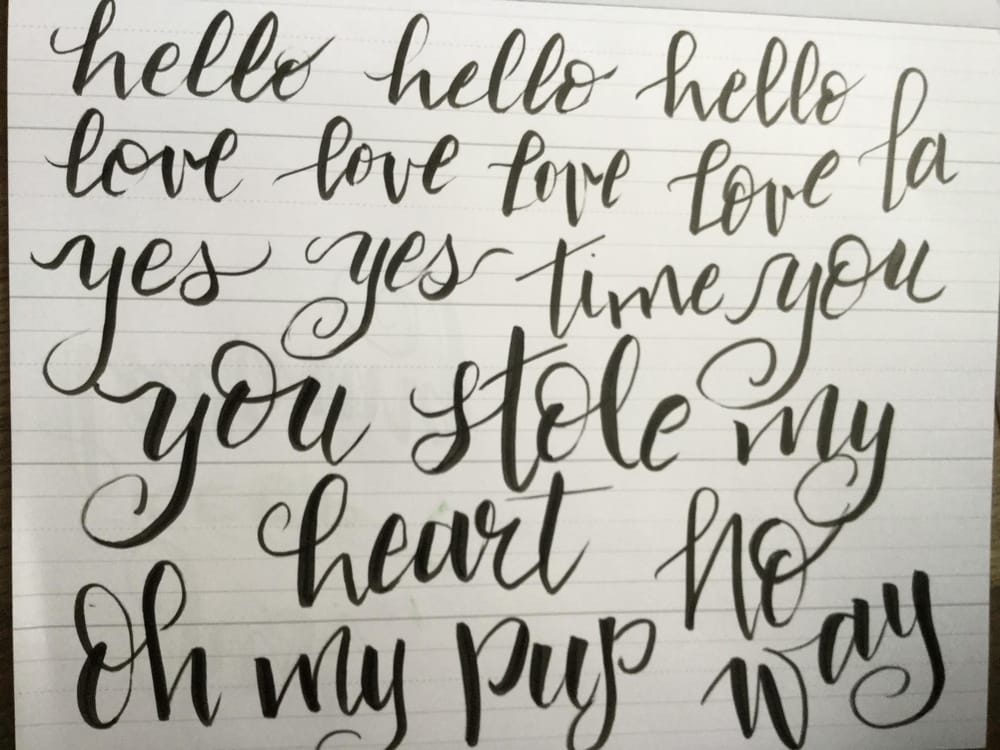 hello hello hello
love love love love la
yes yes time you
you stole my
heart no
Oh my pup way